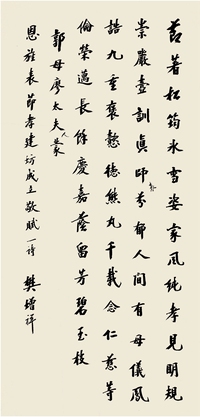 苦著松筠冰雪姿家風純孝見明規
崇嚴壼訓真師芬郁人間有母儀鳳
誥九重褒懿德熊丸千載念仁慈等
倫榮邁長餘慶嘉蔭留芳碧玉枝
郭母廖太夫人蒙
恩旌表節孝建坊成立敬賦一詩 樊增祥